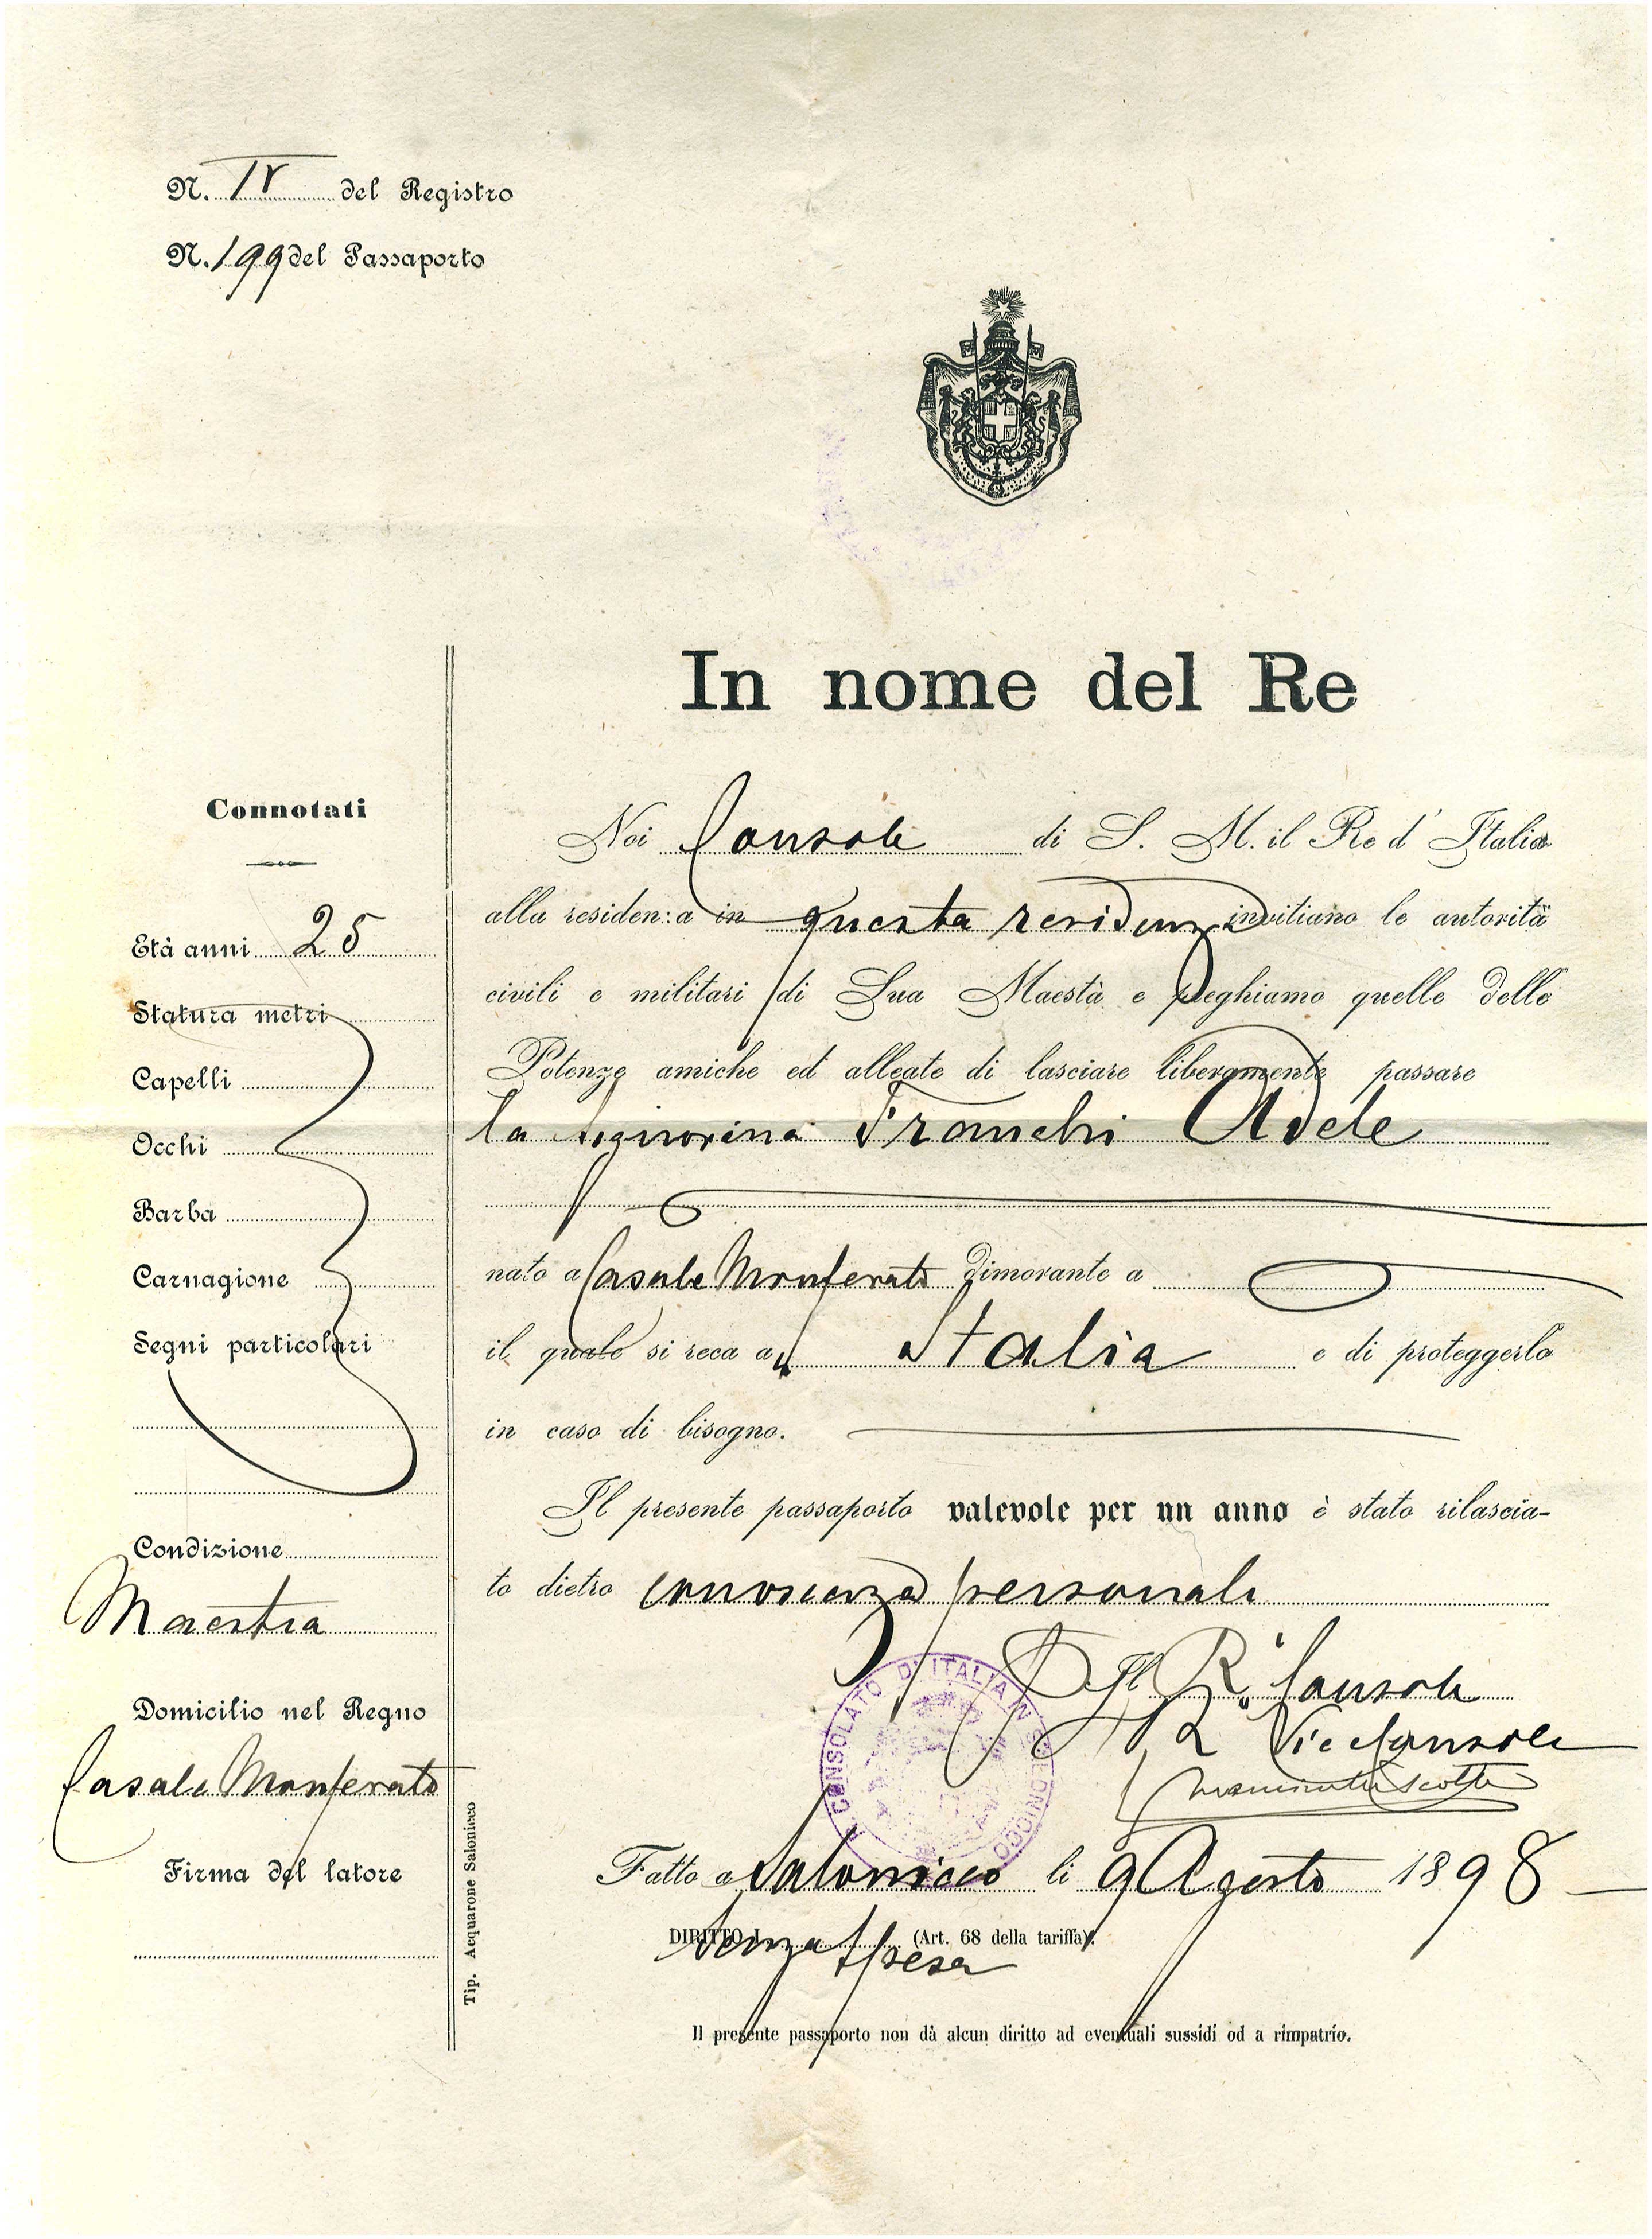 N. IV del Registro
N. 199 del Passaporto
In nome del Re
Connotati
Età anni 25
Statura metri
Capelli
Occhi
Barba
Carnagione
Segni particolari
Condizione
Maestra
Domicilio nel Regno
Casale Monferrato
Firma del latore
Tip. Acquarone Salonicco
Noi Console di S. M. il Re d' Italia
alla residenza in questa residenza invitiamo le autorità
civili e militari di Sua Maestà e preghiamo quelle delle
Potenze amiche ed alleate di lasciare liberamente passare
la Signorina Franchi Adele
nato a Casale Monferrato dimorante a
il quale si reca a Italia e di proteggerlo
in caso di bisogno.
Il presente passaporto valevole per un anno è stato rilascia-
to dietro conoscenza personale
Il R. Console
R. Vice Console
R. CONSOLATO D'ITALIA IN SALONICCO
Fatto a Salonicco li 9 Agosto 1898
DIRITTO L. (Art. 68 della tariffa).
Senza spesa
Il presente passaporto non dà alcun diritto ad eventuali sussidi od a rimpatrio.